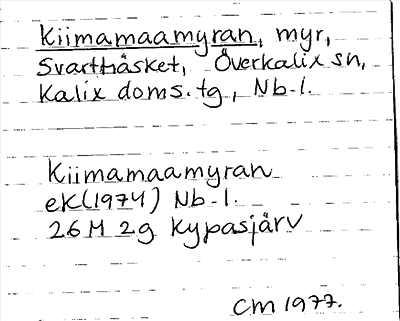 Kiimamaamyran, myr,
Svartbäsket, Överkalix sn,
Kalix doms.tg, Nb.l.
Kiimamaamyran
ek(1974) Nb.l.
26M 2g Kypasjärv
CM 1977.